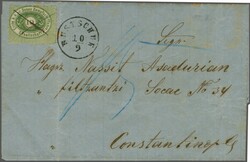 RUSTSCHUK
10
9
Sigri
Hagop Nassib Asadurian
filzantzi Socac No 34
Constantinople